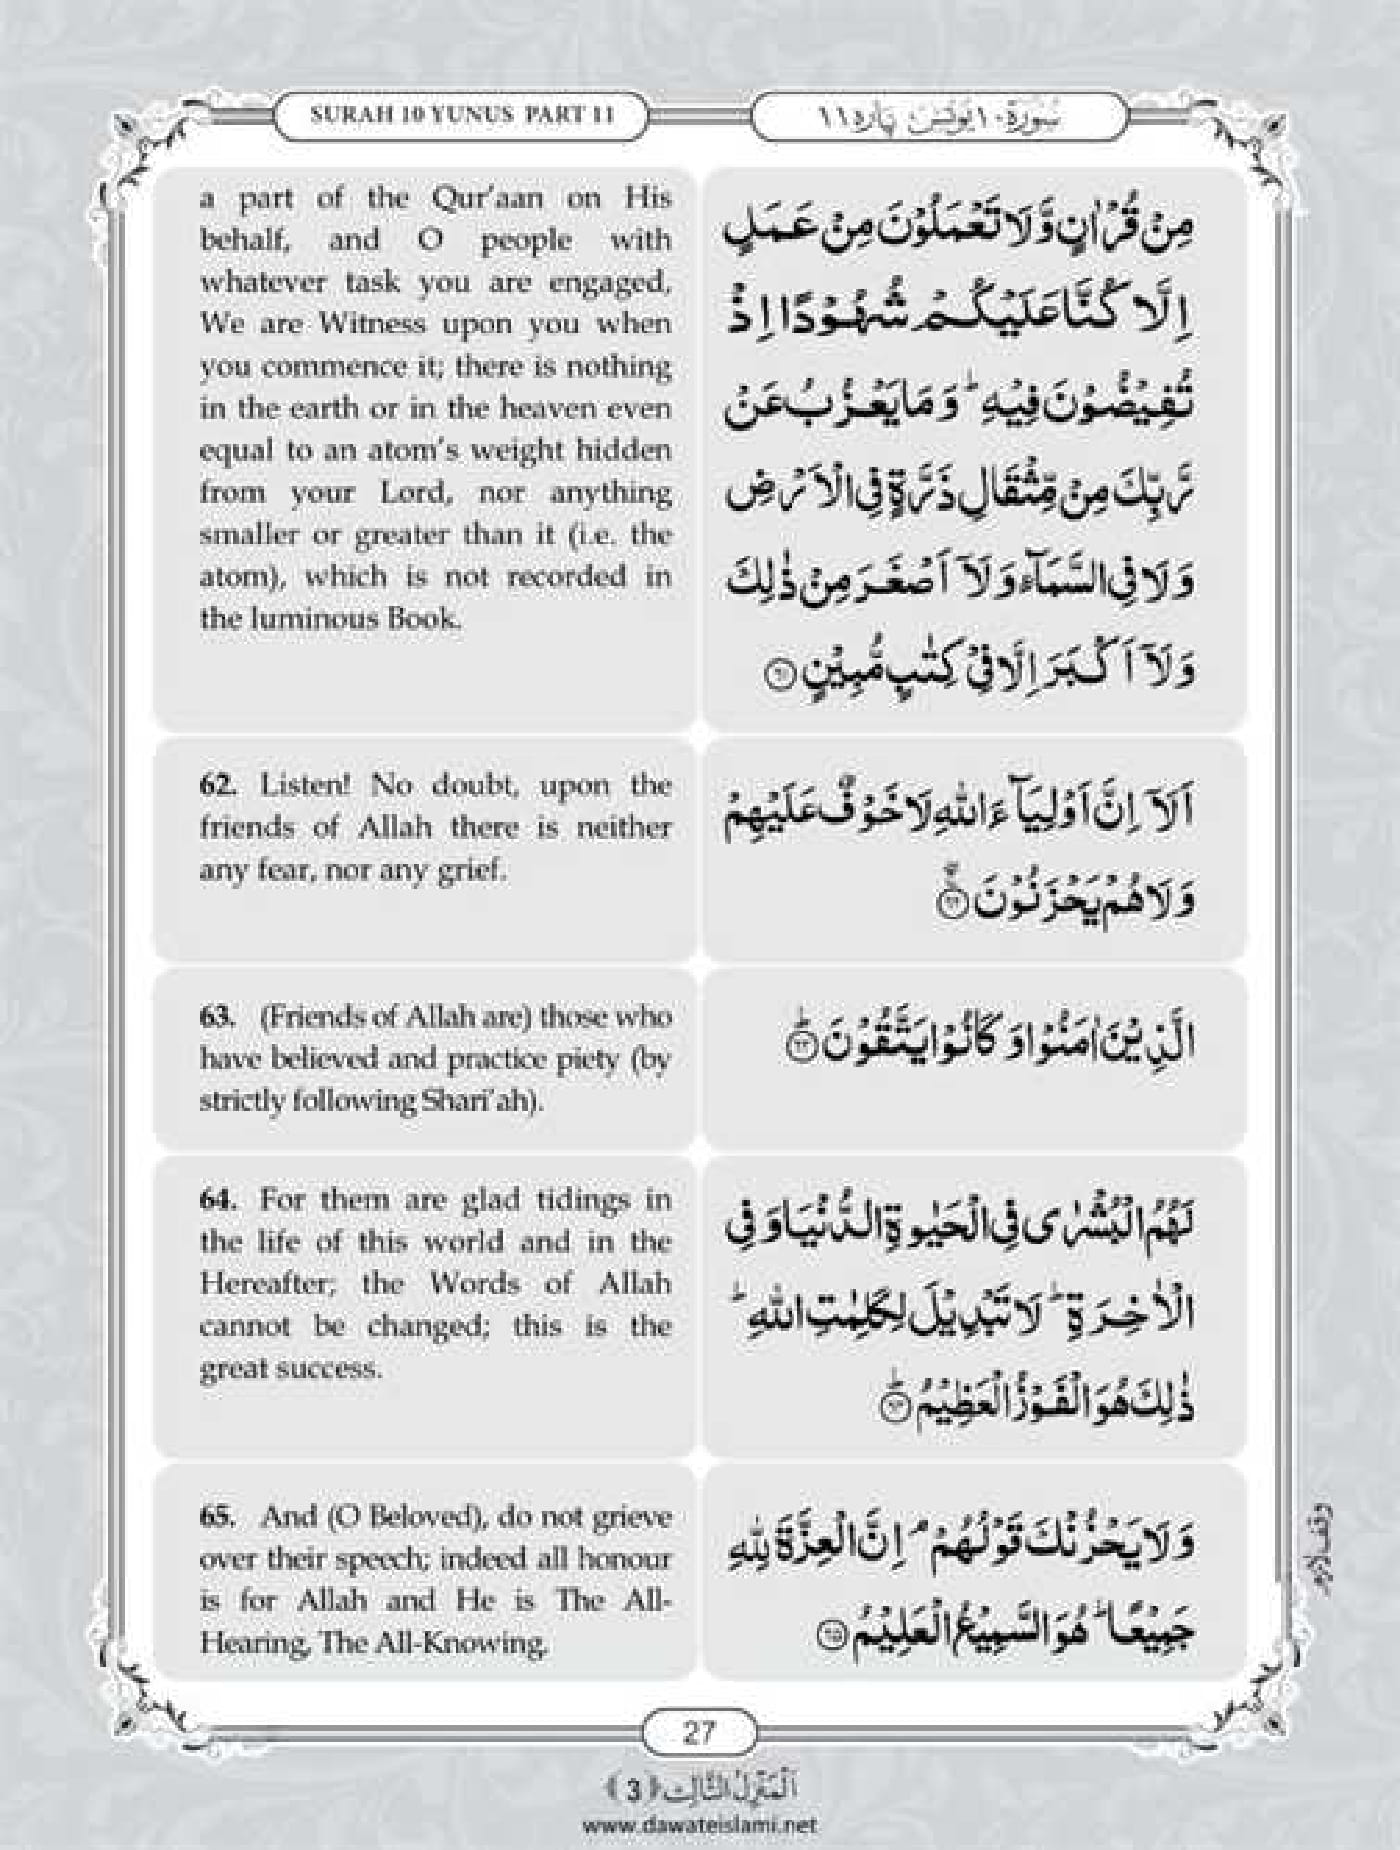 SURAH 10 YUNUS PART 11
سُوْرَة ١٠ يُوْنُس پاره ١١
a part of the Qur'aan on His
behalf, and O people with
whatever task you are engaged,
We are Witness upon you when
you commence it; there is nothing
in the earth or in the heaven even
equal to an atom's weight hidden
from your Lord, nor anything
smaller or greater than it (i.e. the
atom), which is not recorded in
the luminous Book.
مِنْ قُرْاٰنٍ وَّلَا تَعْمَلُوْنَ مِنْ عَمَلٍ
اِلَّا كُنَّا عَلَيْكُمْ شُهُوْدًا اِذْ
تُفِيْضُوْنَ فِيْهِ ؕ وَمَا يَعْزُبُ عَنْ
رَّبِّكَ مِنْ مِّثْقَالِ ذَرَّةٍ فِى الْاَرْضِ
وَلَا فِى السَّمَآءِ وَلَآ اَصْغَرَ مِنْ ذٰلِكَ
وَلَآ اَكْبَرَ اِلَّا فِىْ كِتٰبٍ مُّبِيْنٍ ﴿٦١﴾
62. Listen! No doubt, upon the
friends of Allah there is neither
any fear, nor any grief.
اَلَآ اِنَّ اَوْلِيَآءَ اللّٰهِ لَا خَوْفٌ عَلَيْهِمْ
وَلَا هُمْ يَحْزَنُوْنَ ﴿٦٢﴾
63. (Friends of Allah are) those who
have believed and practice piety (by
strictly following Shari'ah).
الَّذِيْنَ اٰمَنُوْا وَكَانُوْا يَتَّقُوْنَ ﴿٦٣﴾
64. For them are glad tidings in
the life of this world and in the
Hereafter; the Words of Allah
cannot be changed; this is the
great success.
لَهُمُ الْبُشْرٰى فِى الْحَيٰوةِ الدُّنْيَا وَفِى
الْاٰخِرَةِ ؕ لَا تَبْدِيْلَ لِكَلِمٰتِ اللّٰهِ ؕ
ذٰلِكَ هُوَ الْفَوْزُ الْعَظِيْمُ ﴿٦٤﴾
65. And (O Beloved), do not grieve
over their speech; indeed all honour
is for Allah and He is The All-
Hearing, The All-Knowing.
وَلَا يَحْزُنْكَ قَوْلُهُمْ ۘ اِنَّ الْعِزَّةَ لِلّٰهِ
جَمِيْعًا ؕ هُوَ السَّمِيْعُ الْعَلِيْمُ ﴿٦٥﴾
وقف لازم
27
اَلْمَنْزِلُ الثَّالِث ﴿3﴾
www.dawateislami.net